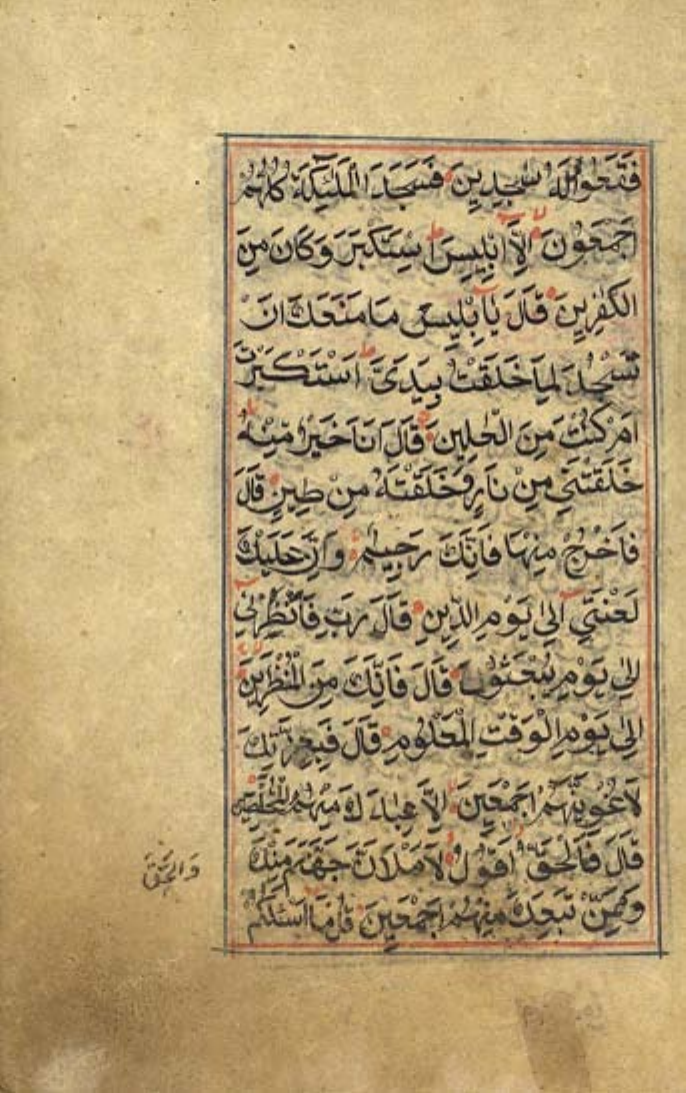 فَقَعُوا لَهُ سٰجِدِينَ فَسَجَدَ الْمَلٰئِكَةُ كُلُّهُمْ
اَجْمَعُونَ اِلَّا اِبْلِيسَ اسْتَكْبَرَ وَكَانَ مِنَ
الْكٰفِرِينَ قَالَ يَا اِبْلِيسُ مَا مَنَعَكَ اَنْ
تَسْجُدَ لِمَا خَلَقْتُ بِيَدَيَّ اَسْتَكْبَرْتَ
اَمْ كُنْتَ مِنَ الْعٰلِينَ قَالَ اَنَا خَيْرٌ مِنْهُ
خَلَقْتَنِي مِنْ نَارٍ وَخَلَقْتَهُ مِنْ طِينٍ قَالَ
فَاخْرُجْ مِنْهَا فَاِنَّكَ رَجِيمٌ وَاِنَّ عَلَيْكَ
لَعْنَتِي اِلٰى يَوْمِ الدِّينِ قَالَ رَبِّ فَاَنْظِرْنِي
اِلٰى يَوْمِ يُبْعَثُونَ قَالَ فَاِنَّكَ مِنَ الْمُنْظَرِينَ
اِلٰى يَوْمِ الْوَقْتِ الْمَعْلُومِ قَالَ فَبِعِزَّتِكَ
لَاُغْوِيَنَّهُمْ اَجْمَعِينَ اِلَّا عِبَادَكَ مِنْهُمُ الْمُخْلَصِينَ
قَالَ فَالْحَقُّ اَقُولُ لَاَمْلَاَنَّ جَهَنَّمَ مِنْكَ
وَمِمَّنْ تَبِعَكَ مِنْهُمْ اَجْمَعِينَ قُلْ مَا اَسْئَلُكُمْ
وَالْحَقَّ